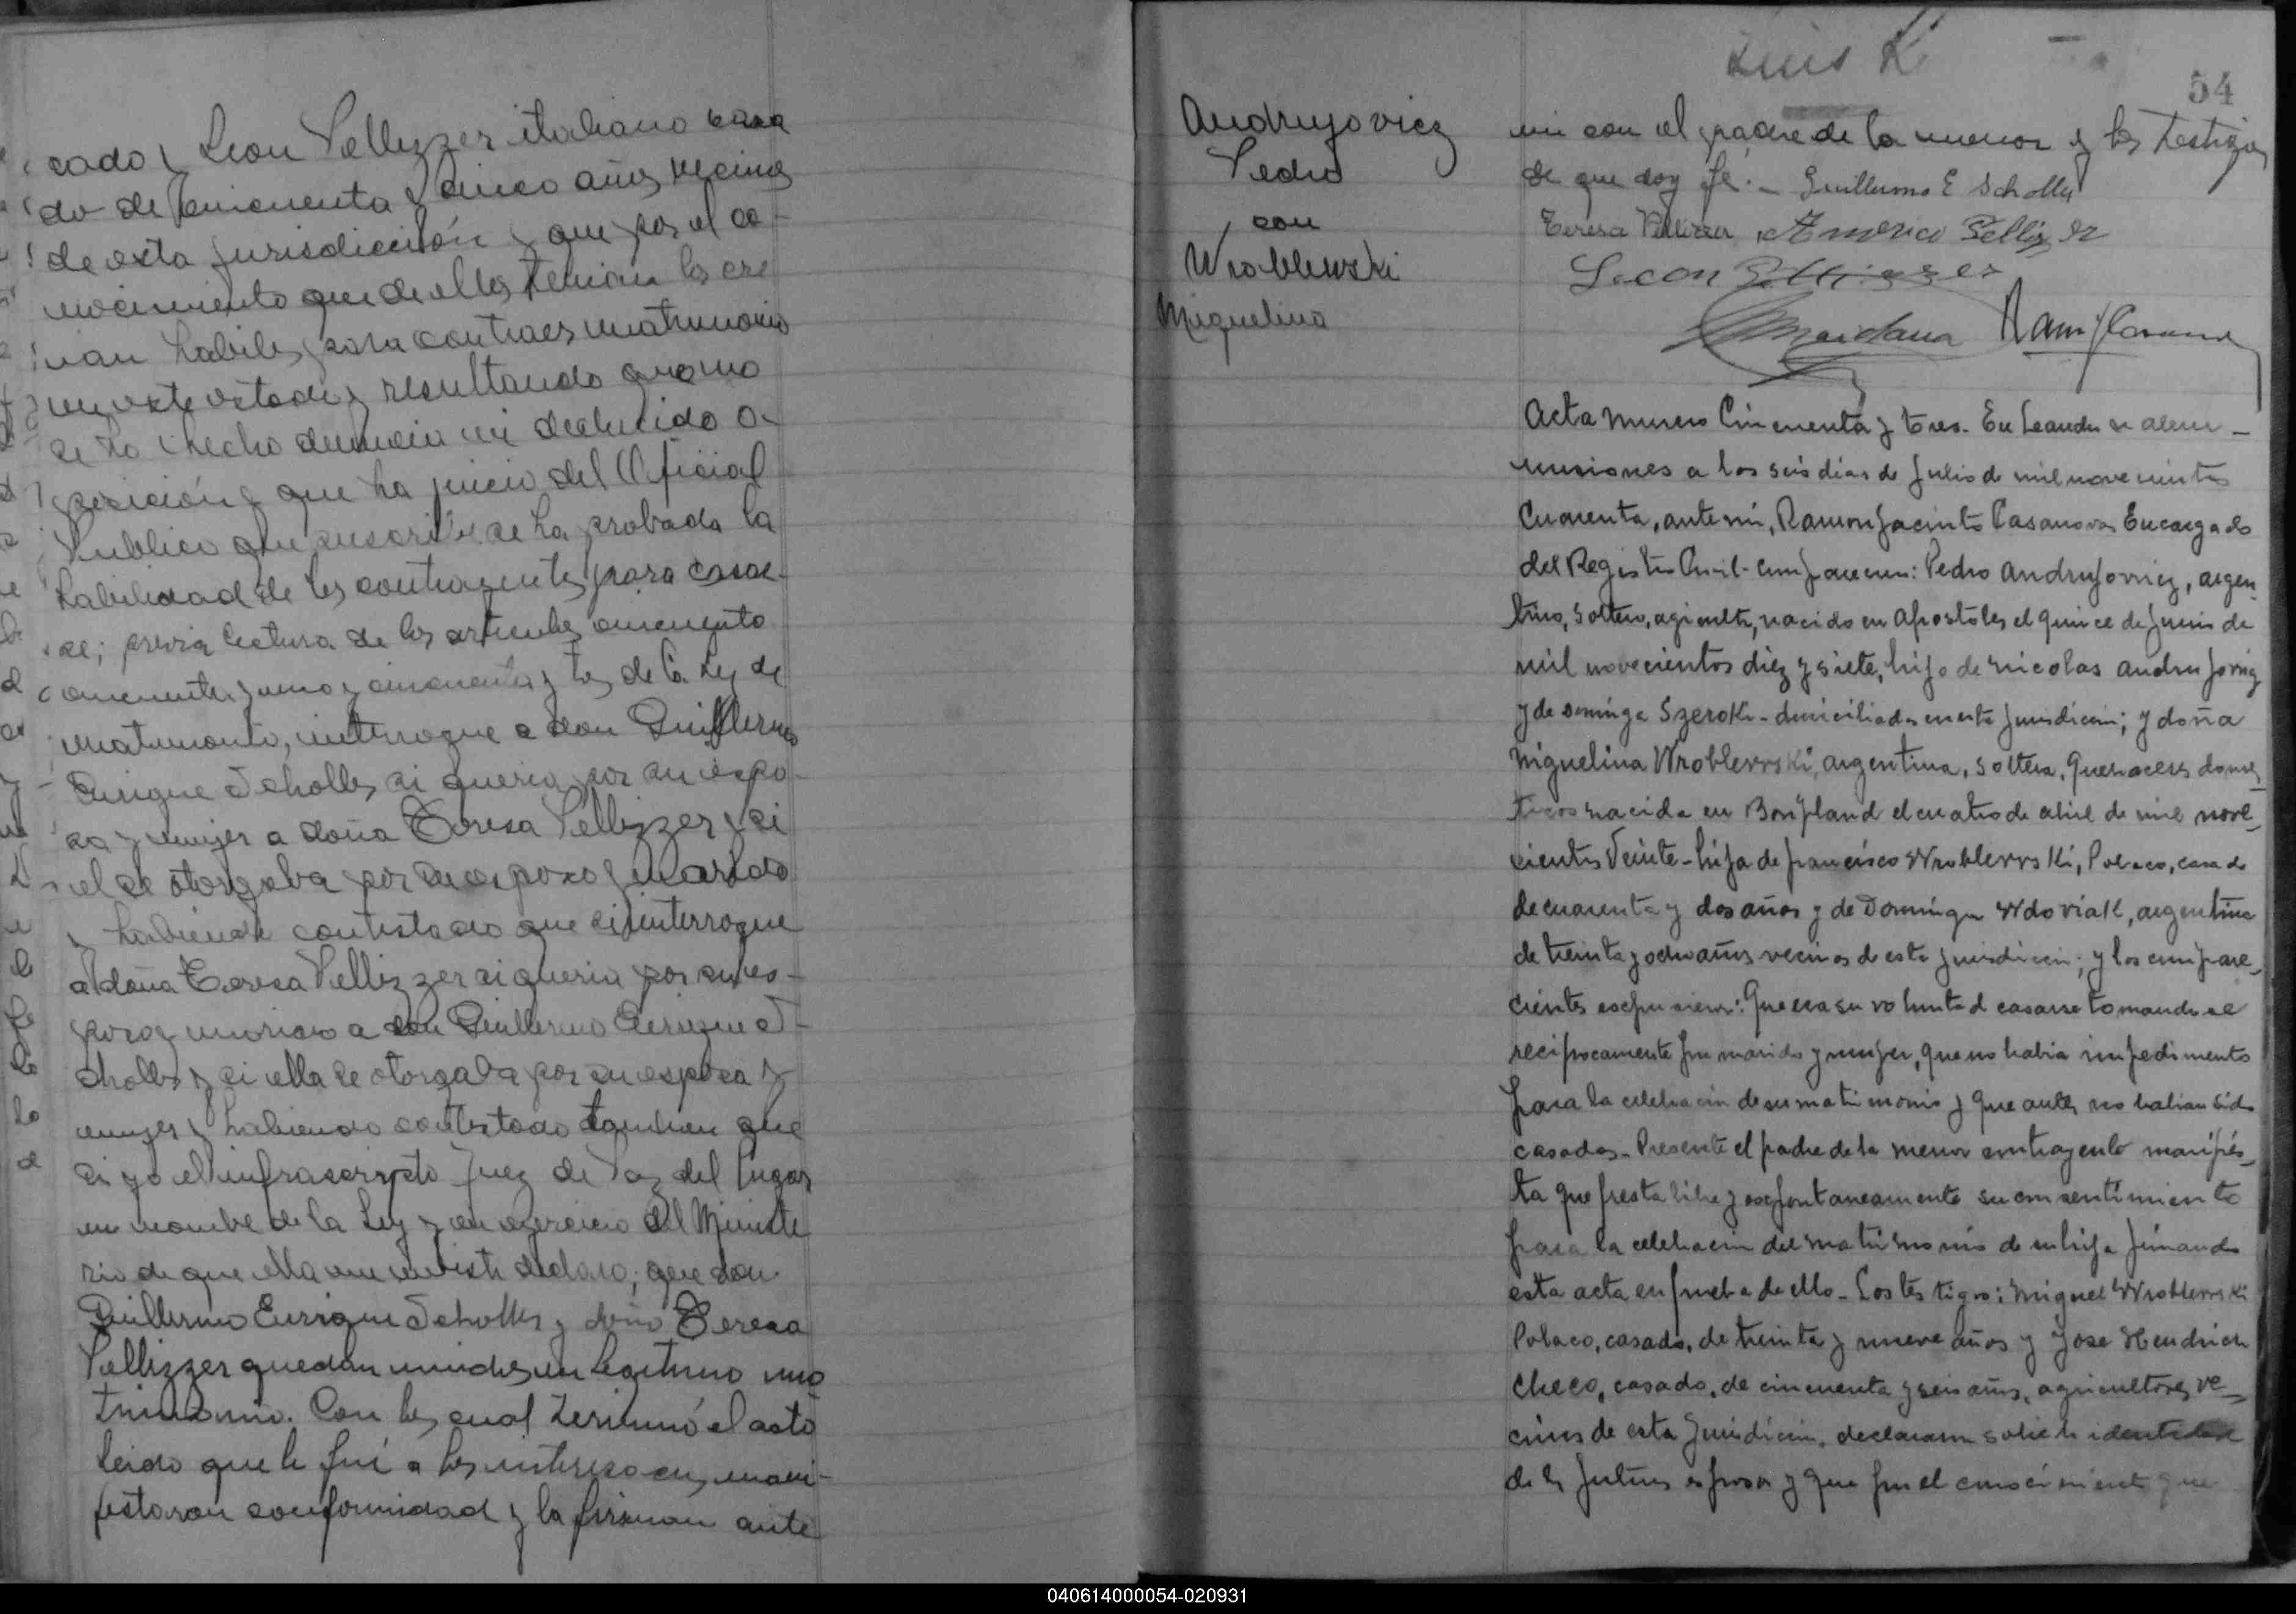 cado y Leon Pellizzer italiano casa
do de cincuenta y cinco años vecinos
de esta jurisdicción y que por el co-
nocimiento que de ellos tenian los cre
ian habiles para contraer matrimonio
en este estado y resultando que no
se ha hecho denuncia ni deducido o-
posición y que ha juicio del Oficial
Publico que suscribe se ha probado la
habilidad de los contrayentes para casar-
se; previa lectura de los articulos cincuenta
cincuenta y uno y cincuenta y tres de la Ley de
matrimonio, interrogue a don Guillermo
Enrique Scholles si queria por su espo-
sa y mujer a doña Teresa Pellizzer y si
el se otorgaba por su esposo y marido
y habiendo contestado que si interrogue
a doña Teresa Pellizzer si queria por su es-
poso y marido a don Guillermo Enrique S-
cholles y si ella se otorgaba por su esposa y
mujer y habiendo contestado tambien que
si yo el infrascripto Juez de Paz del lugar
en nombre de la Ley y en ejercicio del Ministe
rio de que ella me inviste declaro; que don
Guillermo Enrique Scholles y doña Teresa
Pellizzer quedan unidos en legitimo ma
trimonio. Con lo cual terminó el acto
leido que le fué a los interesados, mani-
festaron conformidad y la firman ante
Luis K
54
Andrujovicz
Pedro
con
Wroblewski
Miguelina
mi con el padre de la menor y los testigos
de que doy fé. - Guillermo E Scholles
Teresa Pellizzer, Americo Pellizzer
Leon Pellizzer
Maidana Ram Casanova
Acta numero Cincuenta y tres. En Leandro n alem -
misiones a los seis dias de Julio de mil novecientos
Cuarenta, ante mi, Ramon Jacinto Casanova Encargado
del Registro Civil - Comparecen: Pedro Andrujovicz, argen
tino, Soltero, agricultor, nacido en Apostoles el quince de Junio de
mil novecientos diez y siete, hijo de Nicolas Andrujovicz
y de Dominga Szeroki - domiciliados en esta jurisdiccion; y doña
Miguelina Wroblewski, argentina, soltera, Quehaceres domes
ticos nacida en Bonpland el cuatro de abril de mil nove-
cientos Veinte - hija de francisco Wroblewski, Polaco, casado
de cuarenta y dos años y de Dominga Wdoviak, argentina
de treinta y ocho años vecinos de esta jurisdiccion; y los compare-
cientes expusieron: Que era su voluntad casarse tomandose
recíprocamente por marido y mujer, que no habia impedimento
para la celebracion de su matrimonio y que antes no habian sido
casados - Presente el padre de la menor contrayente manifies-
ta que presta libre y espontaneamente su consentimiento
para la celebracion del matrimonio de su hija firmando
esta acta en prueba de ello - Los testigos: Miguel Wroblewski
Polaco, casado, de treinta y nueve años y Jose Hendrich
Checo, casado, de cincuenta y seis años, agricultores, ve-
cinos de esta Jurisdiccion, declararon sobre la identidad
de los futuros esposos y que por el conocimiento que
040614000054-020931